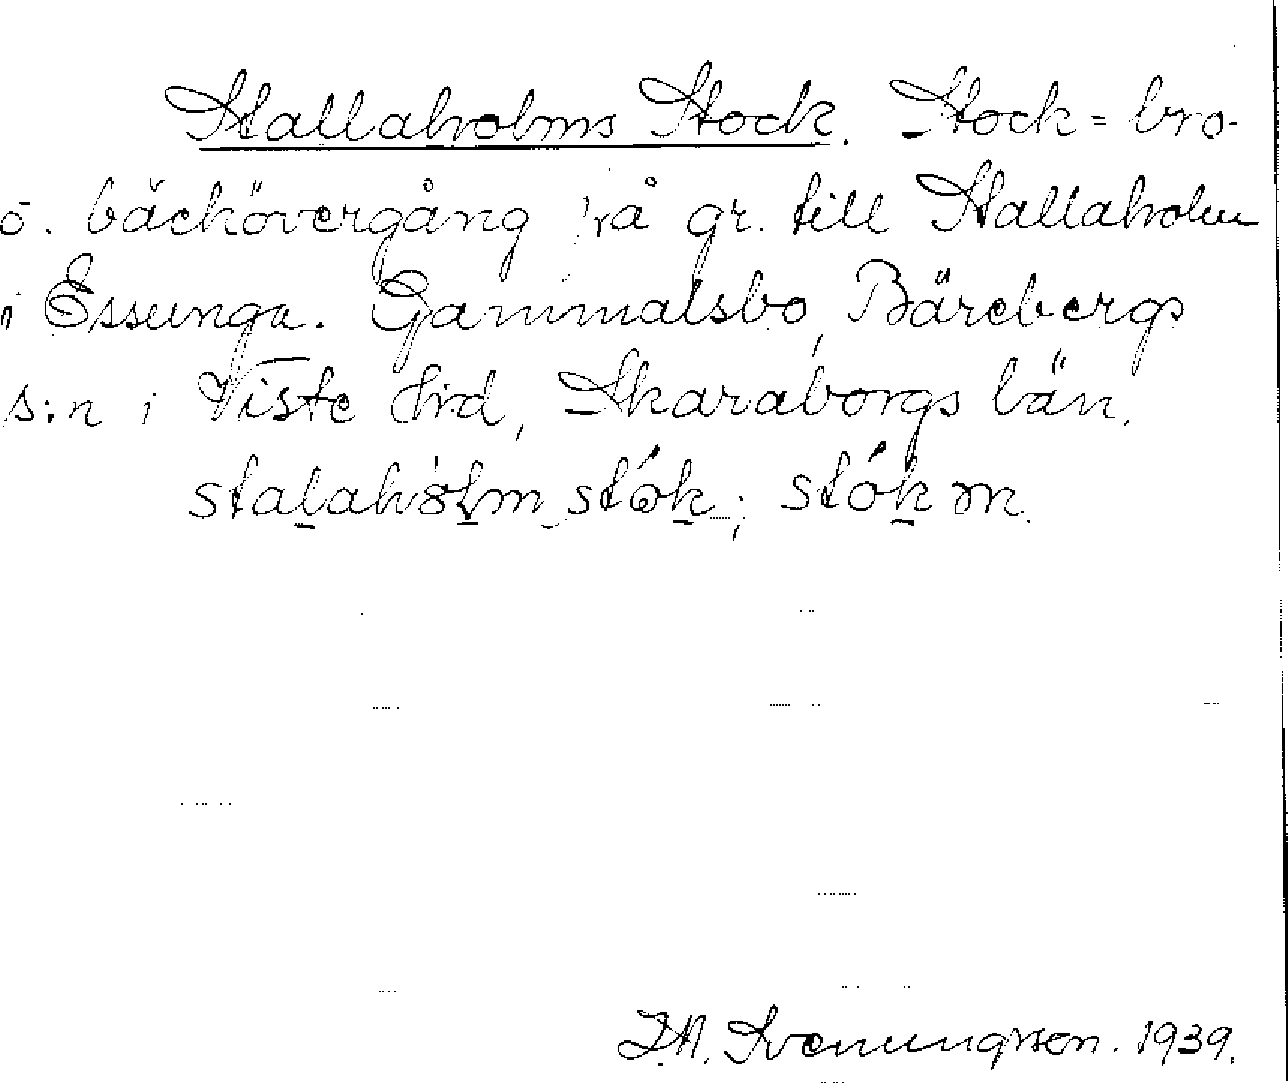 Stallaholms Stock. Stock = bro-
o. bäckövergång på gr. till Stallaholm
i Essunga. Gammalsbo, Bärebergs
s:n i Viste Hrd, Skaraborgs län.
stalahòlm stók; stók m.
D.A. Svenungsson. 1939.